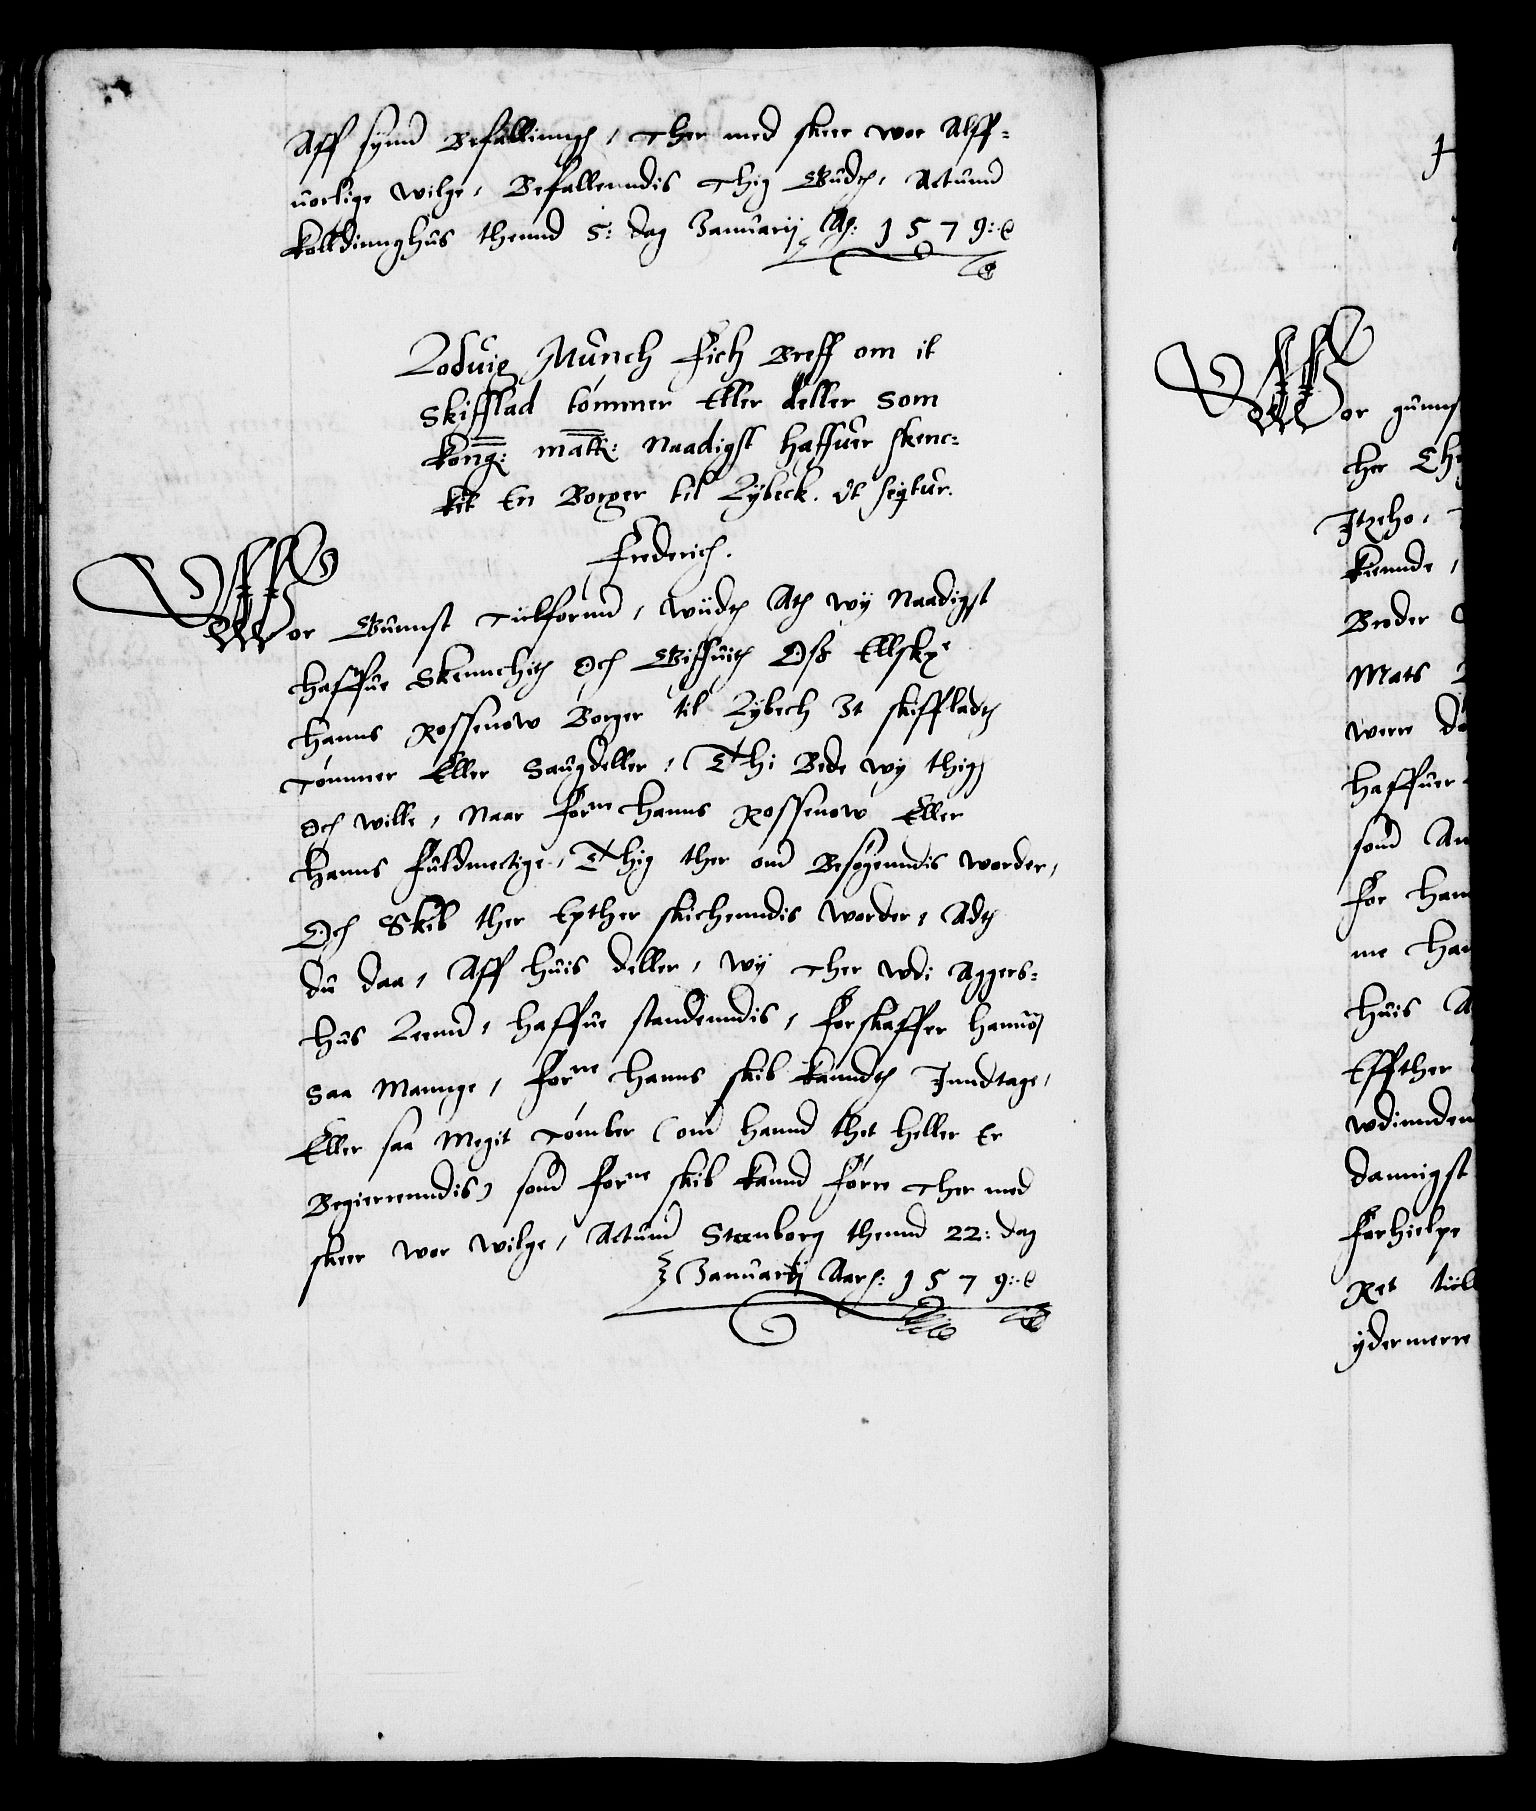 Aff synn Befallinngh, Ther med skeer wor Alff-
uorlige wilge, Befallenndis Thig Gudh, Actumm
Kolldinnghus thennd 5: dag Januarij Ah: 1579:
Lodvig Munch Fich Breff om it
Skifflad tömmer Eller deller Som
Kong: Matt: Naadigst haffuer skenc-
kit En Borger til Lybeck. Vt seqtur.
Frederich.
Wor Gunnst Tiilfornn, Wiidh Ath wij Naadigst
haffue Skennchith Och Giffuith Oss Ellske
Hanns Rossenow Borger til Lybech It skiffladh
Tömmer Eller Saugdeller, Thi Bede wij thig
Och wille, Naar forne Hanns Rossenow Eller
Hanns Fuldmectige, Thig ther om Besögenndis worder,
Och Skib ther Epther skickenndis worder, Adh
du daa, Aff huis deller, wij Ther wdi Aggers-
hus Leenn, haffue standenndis, forskaffer hannom
saa Mannge, forne Hanns skib kanndh Inndtage,
Eller saa Megit Tömber (om hannd thet heller Er
Begierenndis) som forne skib kannd förre Ther med
skeer wor wilge, Actumm Steenborg thennd 22: dag
Januarij Aarh: 1579:
Wor gunns
her Chr
Itzeho,
kiennde,
Broder
Mats
were
haffuer
som An
For Han
me Han
huis A
Effther
wdinnden
dannigst
Forhielpe
Ret tiil
ÿdermerre